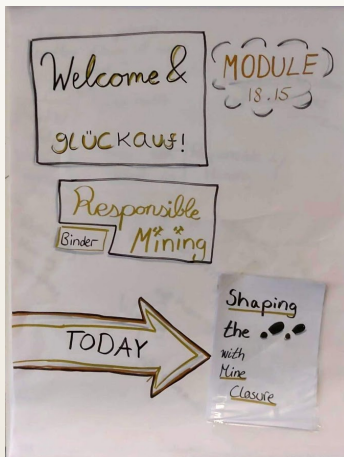 Welcome &
GLÜCKAUF!
MODULE
18.15
Responsible
Binder
Mining
TODAY
Shaping
the
with
Mine
Closure